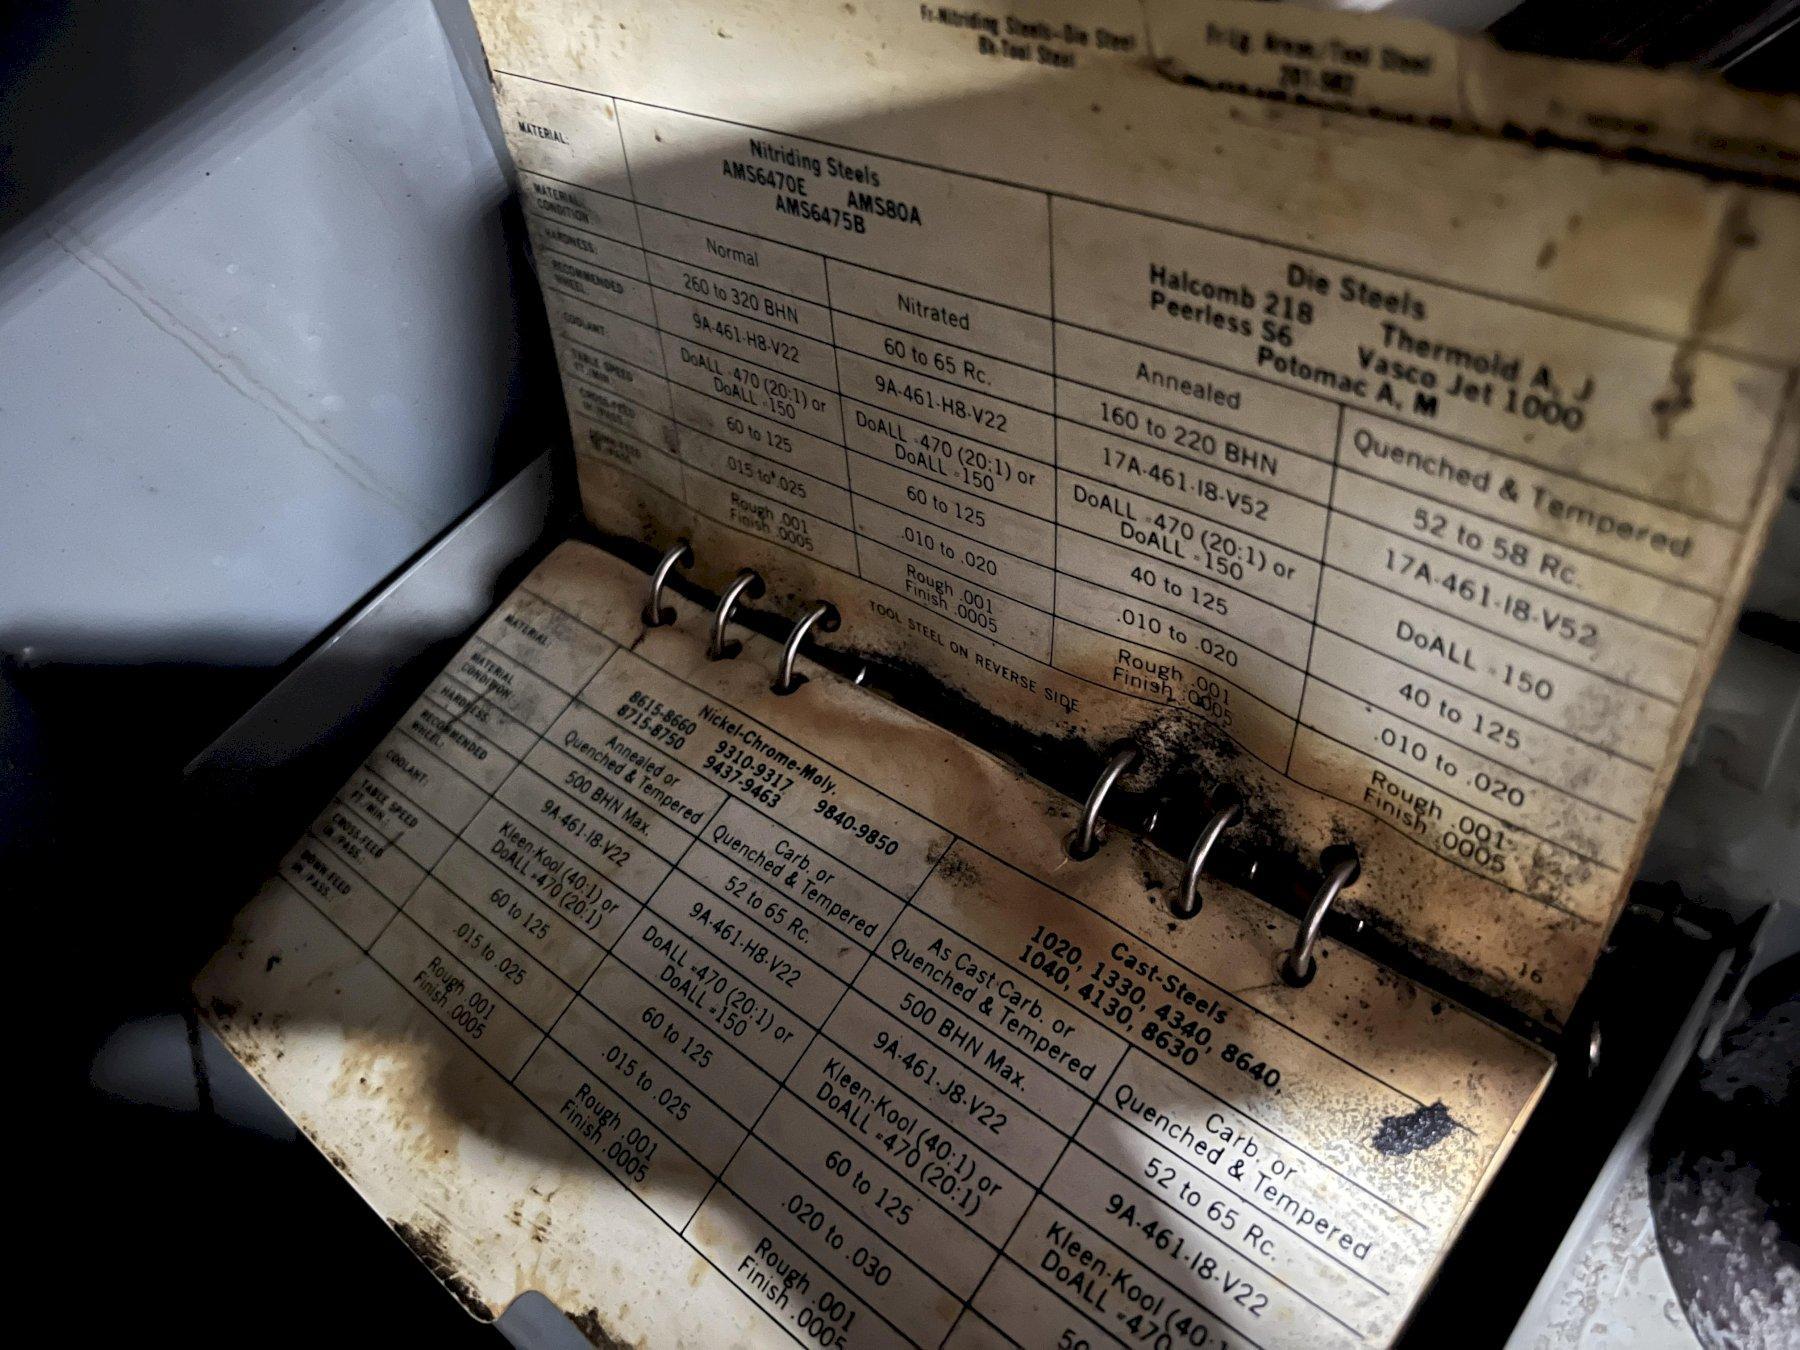 Fr-Nitriding Steels-Die Steel
Bk-Tool Steel
Tool Steel
MATERIAL:
Nitriding Steels
AMS6470E AMS80A
AMS6475B
Die Steels
Halcomb 218 Thermold A, J
Peerless S6 Vasco Jet 1000
Potomac A, M
MATERIAL
CONDITION
Normal
Nitrated
Annealed
Quenched & Tempered
HARDNESS:
260 to 320 BHN
60 to 65 Rc.
160 to 220 BHN
52 to 58 Rc.
RECOMMENDED
WHEEL:
9A-461-H8-V22
9A-461-H8-V22
17A-461-I8-V52
17A-461-I8-V52
COOLANT:
DoALL #470 (20:1) or
DoALL #150
DoALL #470 (20:1) or
DoALL #150
DoALL #470 (20:1) or
DoALL #150
DoALL #150
TABLE SPEED
FT./MIN.:
60 to 125
60 to 125
40 to 125
40 to 125
CROSS-FEED
IN./PASS:
.015 to .025
.010 to .020
.010 to .020
.010 to .020
DOWN FEED
IN./PASS:
Rough .001
Finish .0005
Rough .001
Finish .0005
Rough .001
Finish .0005
Rough .001
Finish .0005
TOOL STEEL ON REVERSE SIDE
16
MATERIAL:
Nickel-Chrome-Moly.
8615-8660 9310-9317 9840-9850
8715-8750 9437-9463
Cast-Steels
1020, 1330, 4340, 8640,
1040, 4130, 8630
MATERIAL
CONDITION:
Annealed or
Quenched & Tempered
Carb. or
Quenched & Tempered
As Cast Carb. or
Quenched & Tempered
Carb. or
Quenched & Tempered
HARDNESS:
500 BHN Max.
52 to 65 Rc.
500 BHN Max.
52 to 65 Rc.
RECOMMENDED
WHEEL:
9A-461-I8-V22
9A-461-H8-V22
9A-461-J8-V22
9A-461-I8-V22
COOLANT:
Kleen-Kool (40:1) or
DoALL #470 (20:1)
DoALL #470 (20:1) or
DoALL #150
Kleen-Kool (40:1) or
DoALL #470 (20:1)
Kleen-Kool (40:1
DoALL #470
TABLE SPEED
FT./MIN.:
60 to 125
60 to 125
60 to 125
CROSS-FEED
IN./PASS:
.015 to .025
.015 to .025
.020 to .030
DOWN FEED
IN./PASS:
Rough .001
Finish .0005
Rough .001
Finish .0005
Rough .001
Finish .0005